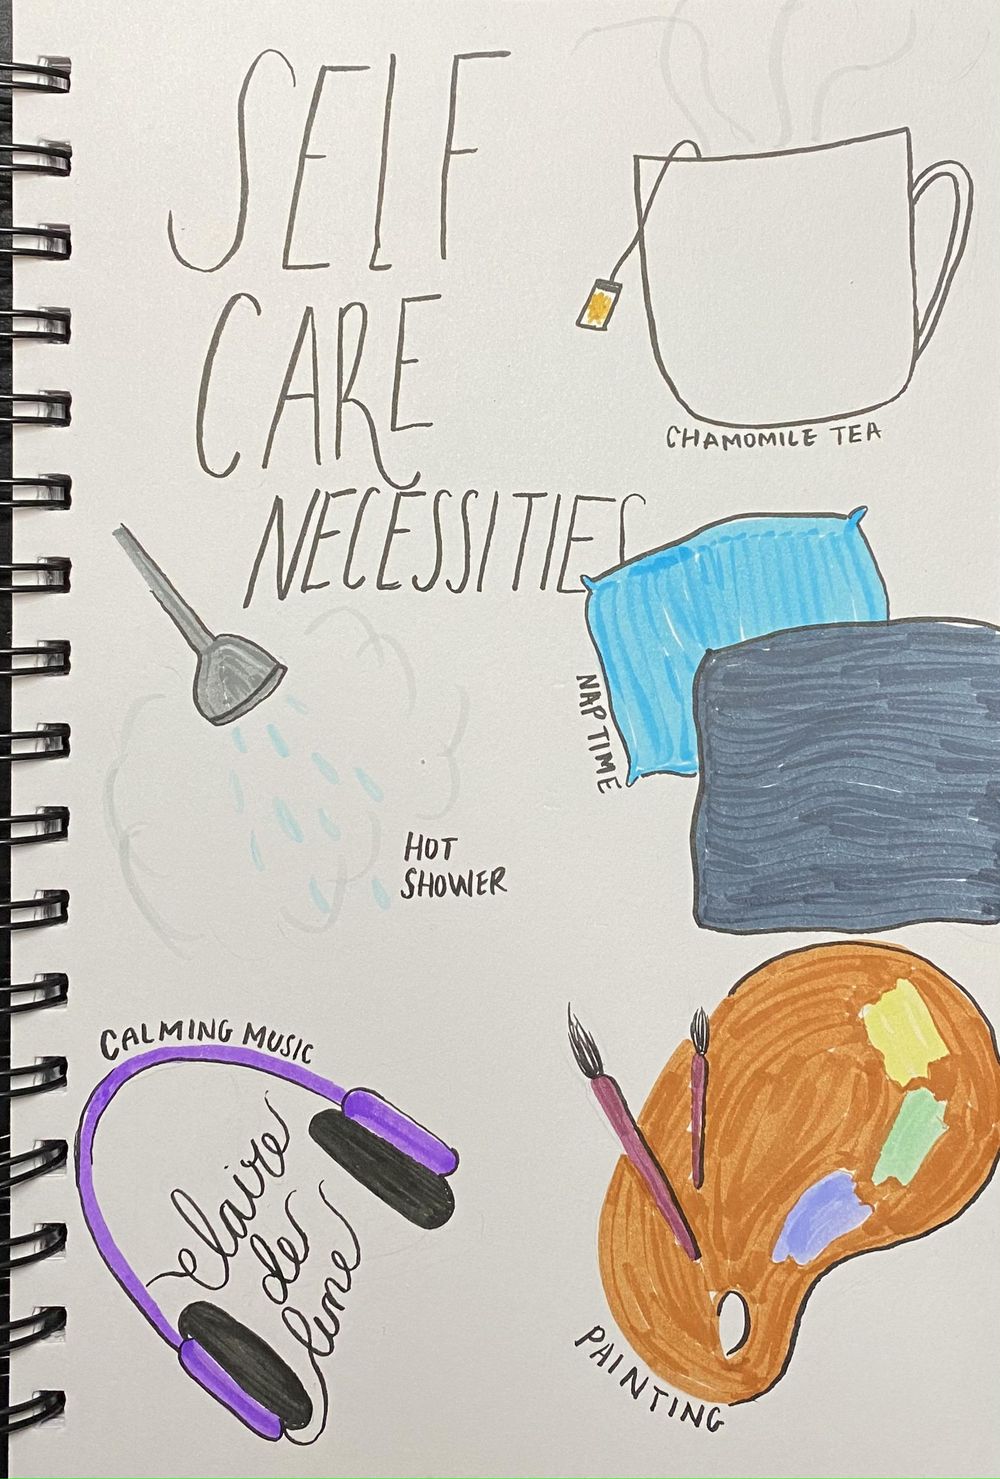 SELF
CARE
NECESSITIES
CHAMOMILE TEA
NAP TIME
HOT
SHOWER
CALMING MUSIC
claire
de
lune
PAINTING